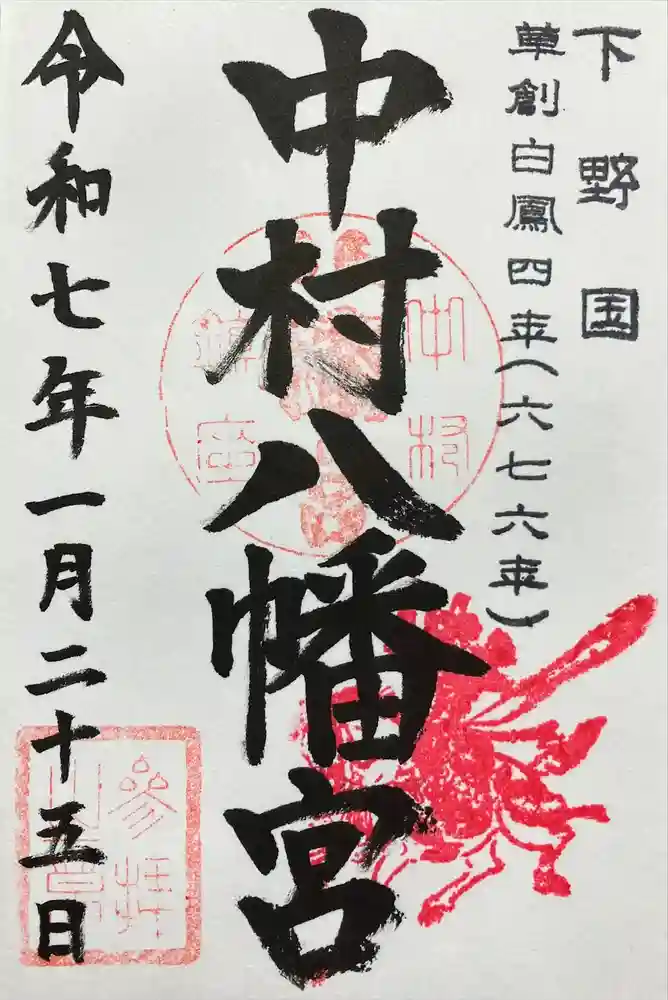 下野国
草創白鳳四年(六七六年)
中村八幡宮
令和七年一月二十五日
中村
鎮座
参拝